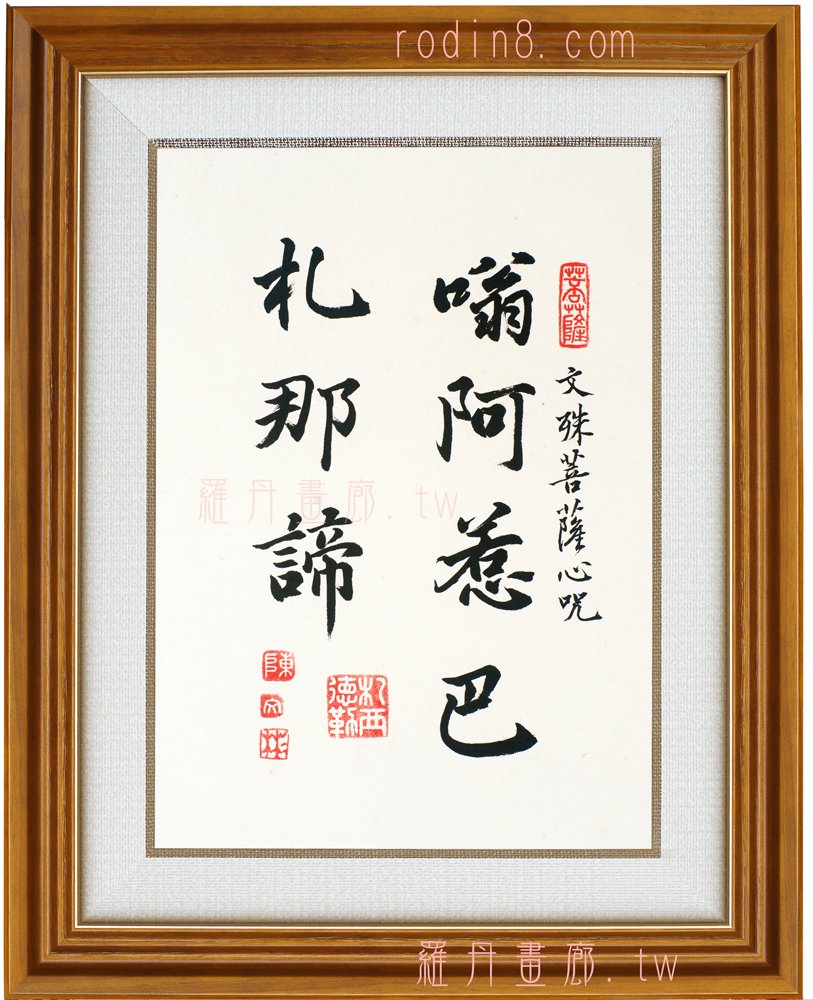 rodin8.com
菩薩
文殊菩薩心咒
嗡阿惹巴
札那諦
札西德勒
陳
文
羅丹畫廊.tw
羅丹畫廊.tw